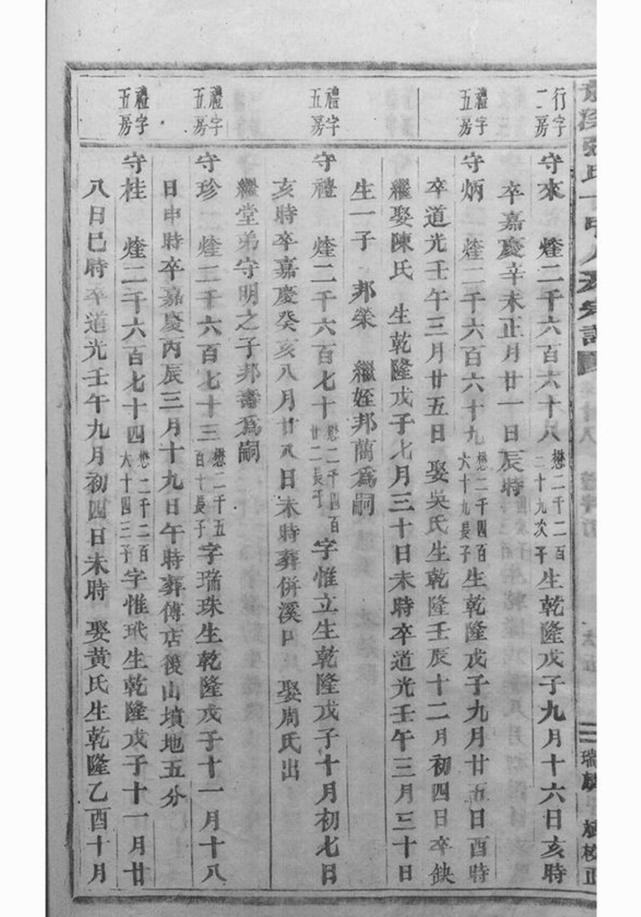 行字二房
守來 煃二千六百六十八 懋二千二百二十九次子 生乾隆戊子九月十六日亥時
卒嘉慶辛未正月廿一日辰時
禮字五房
守炳 煃二千六百六十九 懋二千四百六十九長子 生乾隆戊子九月廿五日酉時
卒道光壬午三月廿五日 娶吳氏生乾隆壬辰十二月初四日卒缺
繼娶陳氏 生乾隆戊子七月三十日未時卒道光壬午三月三十日
生一子 邦榮 繼姪邦蔄為嗣
禮字五房
守禮 煃二千六百七十 懋二千四百廿二長子 字惟立生乾隆戊子十月初七日
亥時卒嘉慶癸亥八月廿八日未時葬併溪口 娶周氏出
繼堂弟守明之子邦為嗣
禮字五房
守珍 煃二千六百七十三 懋二千五百十長子 字瑞珠生乾隆戊子十一月十八
日申時卒嘉慶丙辰三月十九日午時葬傅店後山墳地五分
禮字五房
守桂 煃二千六百七十四 懋二千二百六十四三子 字惟玳生乾隆戊子十一月廿
八日巳時卒道光壬午九月初四日未時 娶黃氏生乾隆乙酉十月